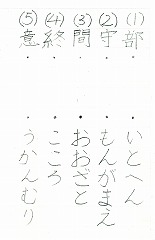 (1)部
(2)守
(3)間
(4)終
(5)意
いとへん
もんがまえ
おおざと
こころ
うかんむり